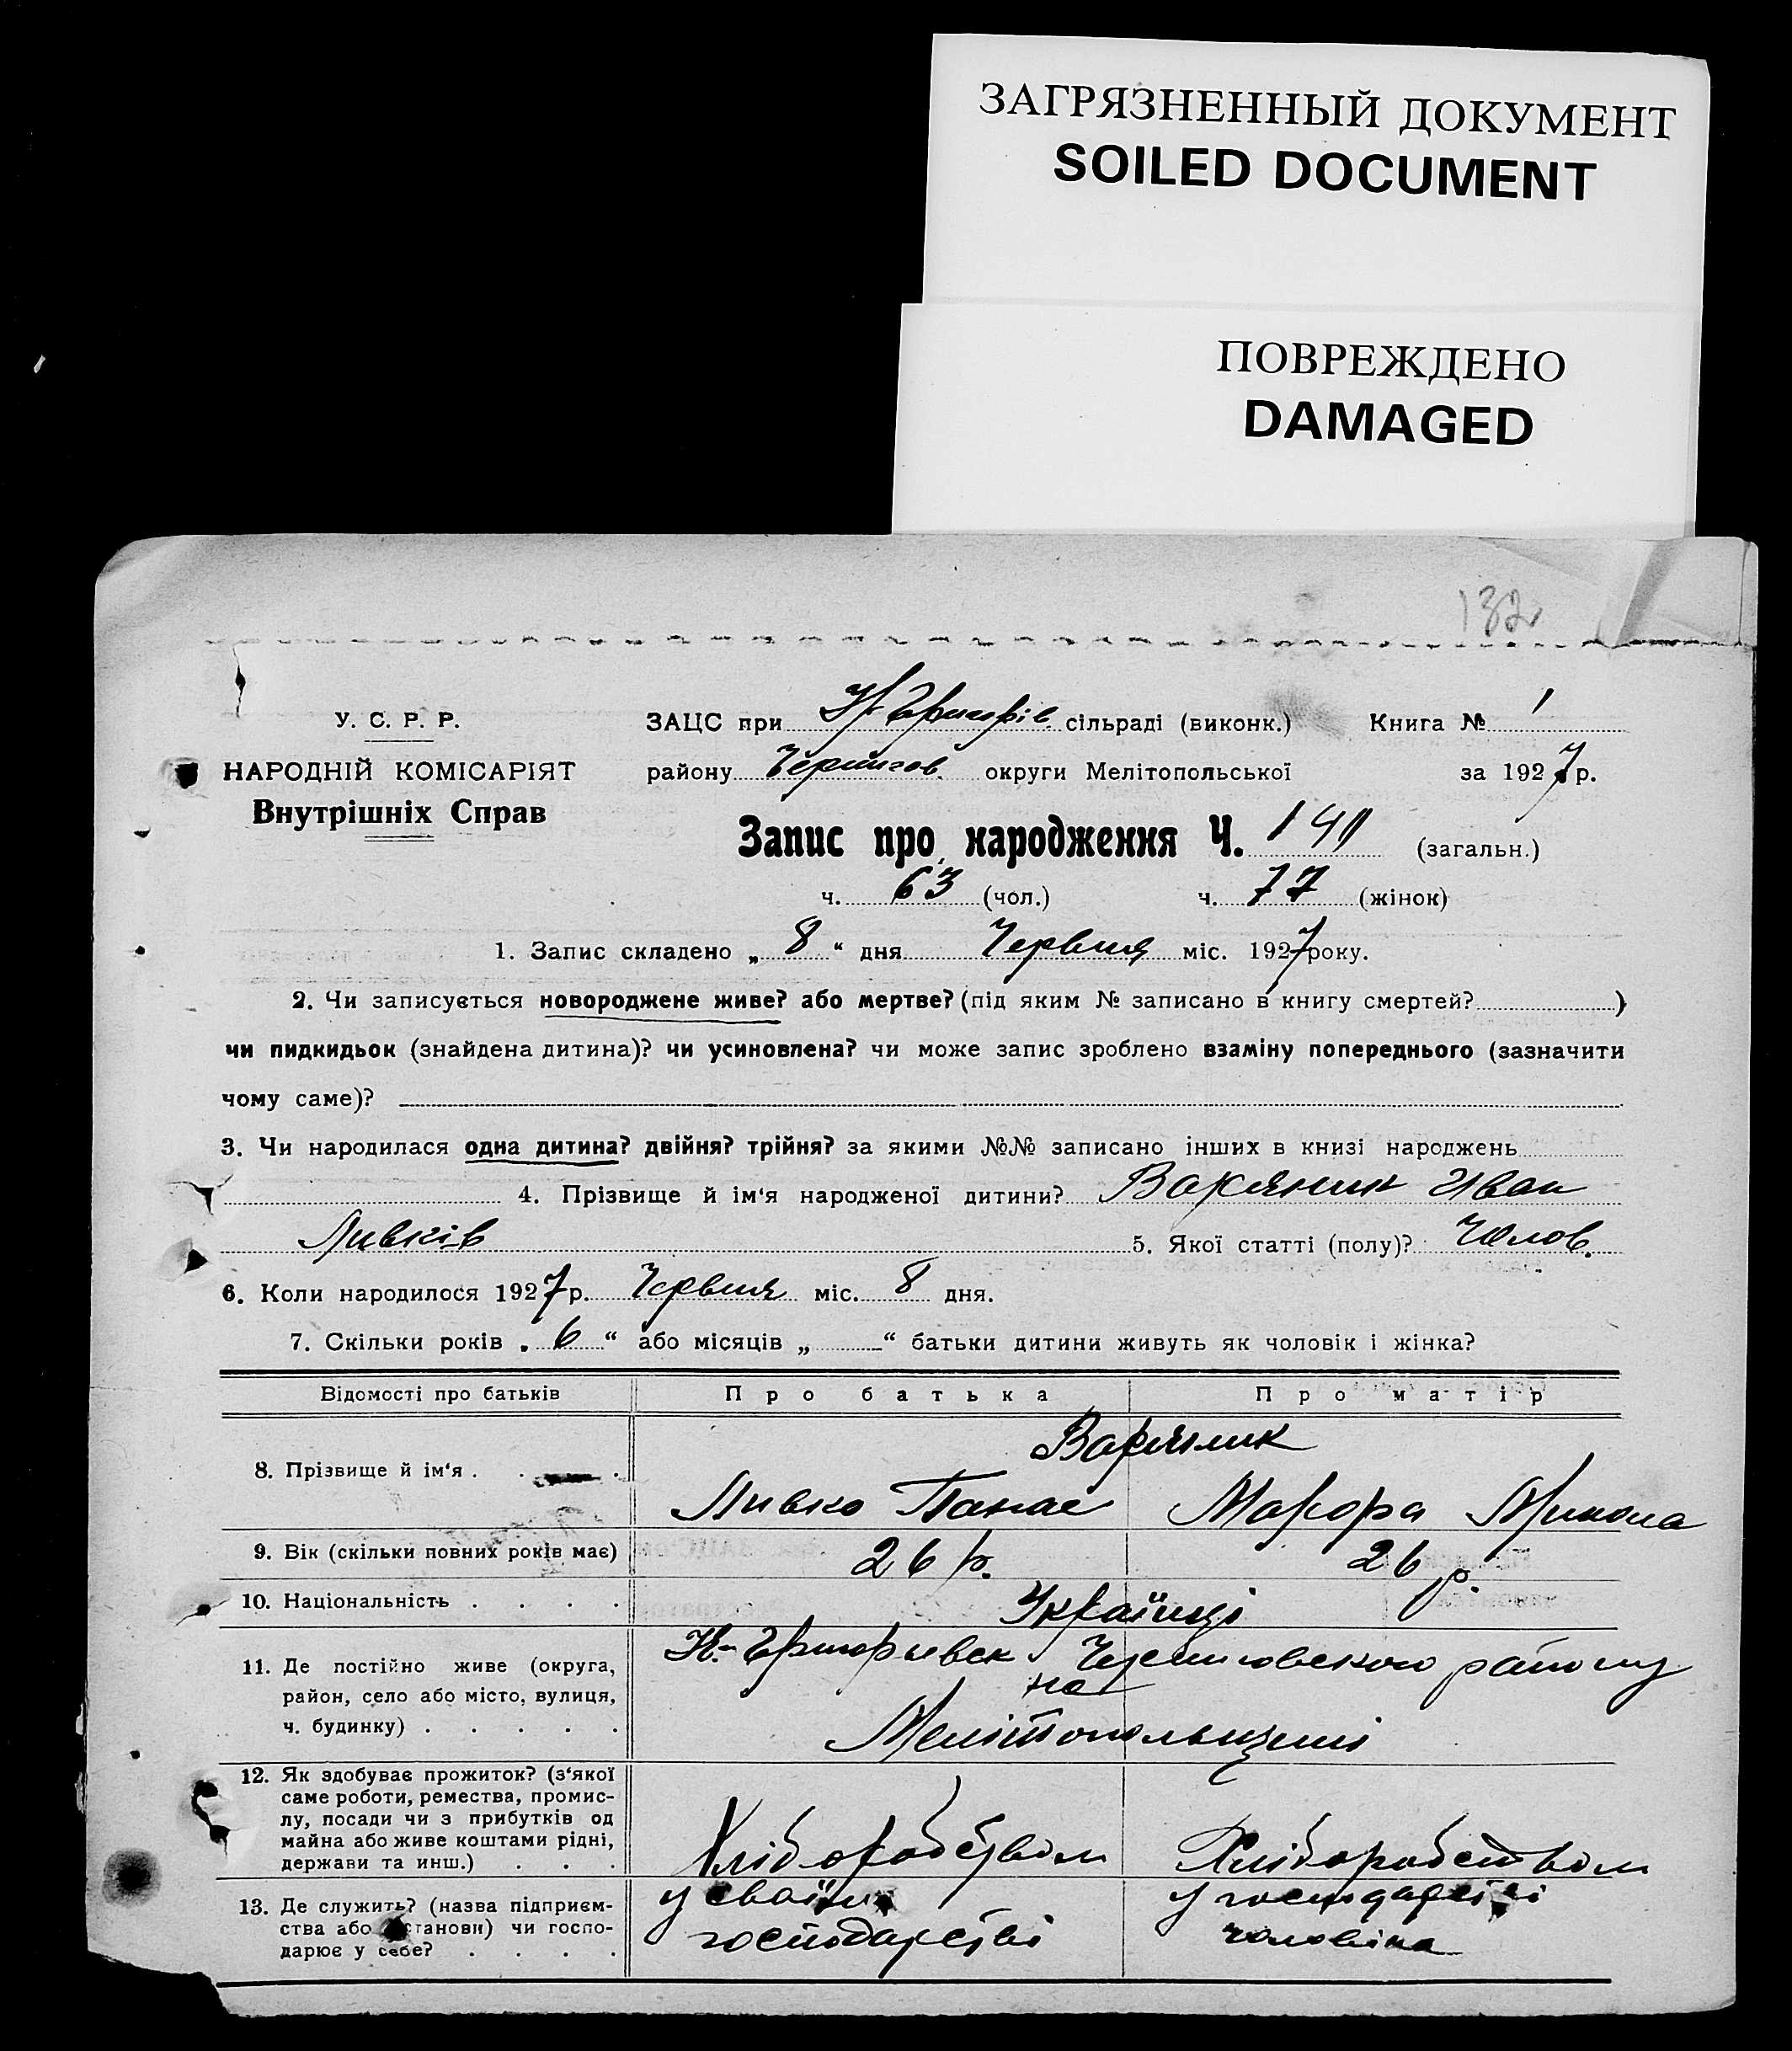 ЗАГРЯЗНЕННЫЙ ДОКУМЕНТ
SOILED DOCUMENT
ПОВРЕЖДЕНО
DAMAGED
132
У. С. Р. Р.
НАРОДНІЙ КОМІСАРІЯТ
Внутрішніх Справ
ЗАЦС при Н-Григорів. сільраді (виконк.) Книга № 1
району Чернігов. округи Мелітопольської за 1927 р.
Запис про народження Ч. 140 (загальн.)
ч. 63 (чол.) ч. 77 (жінок)
1. Запис складено „ 8 “ дня Червня міс. 1927 року.
2. Чи записується новороджене живе? або мертве? (під яким № записано в книгу смертей? )
чи пидкидьок (знайдена дитина)? чи усиновлена? чи може запис зроблено взаміну попереднього (зазначити
чому саме)?
3. Чи народилася одна дитина? двійня? трійня? за якими №№ записано інших в книзі народжень
4. Прізвище й ім‘я народженої дитини? Варяник Иван
Ливків 5. Якої статті (полу)? Чолов.
6. Коли народилося 1927 р. Червня міс. 8 дня.
7. Скільки років „ 6 “ або місяців „ “ батьки дитини живуть як чоловік і жінка?
Відомості про батьків Про батька Про матір
8. Прізвище й ім‘я . . . Варяник
Ливко Панас
9. Вік (скільки повних років має) 26 р. 26 р.
10. Національність . . . . Українці
11. Де постійно живе (округа,
район, село або місто, вулиця,
ч. будинку) . . . . .
Н.-Григорьевск Черниговского району
на
Мелітопольщині
12. Як здобуває прожиток? (з‘якої
саме роботи, ремества, промис-
лу, посади чи з прибутків од
майна або живе коштами рідні,
держави та инш.) . . .
Хліборобством Хліборобством
13. Де служить? (назва підприєм-
ства або установи) чи госпо-
дарює у себе? . . . .
у своїм
господарстві
у господарстві
чоловіка